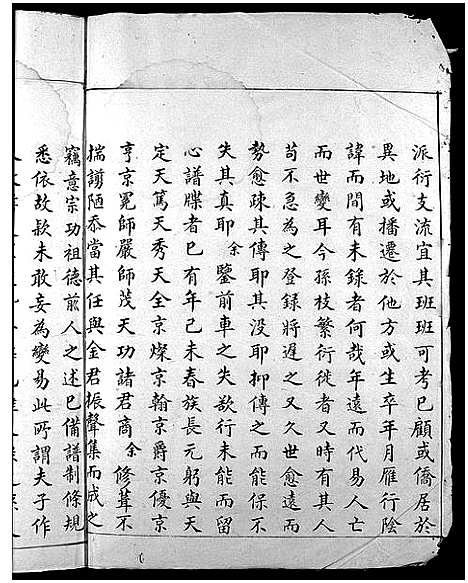 派衍支流宜其班班可考已顧或僑居於
異地或播遷於他方或生卒年月雁行陰
諱而間有未錄者何哉年遠而代易人亡
而世變耳今孫枝繁衍徙者又時有其人
苟不急為之登錄將遲之又久世愈遠而
勢愈疎其傳耶其没耶抑傳之而能保不
失其真耶余鑒前車之失欲行未能而留
心譜牒者已有年己未春族長元躬與天
定天篤天秀天全京燦京翰京爵京優京
亨京冕師嚴師茂天功諸君商余修葺不
揣謭陋忝當其任與金君振聲集而成之
竊意宗功祖德前人之述已備譜制條規
悉依故款未敢妄為變易此所謂夫子作